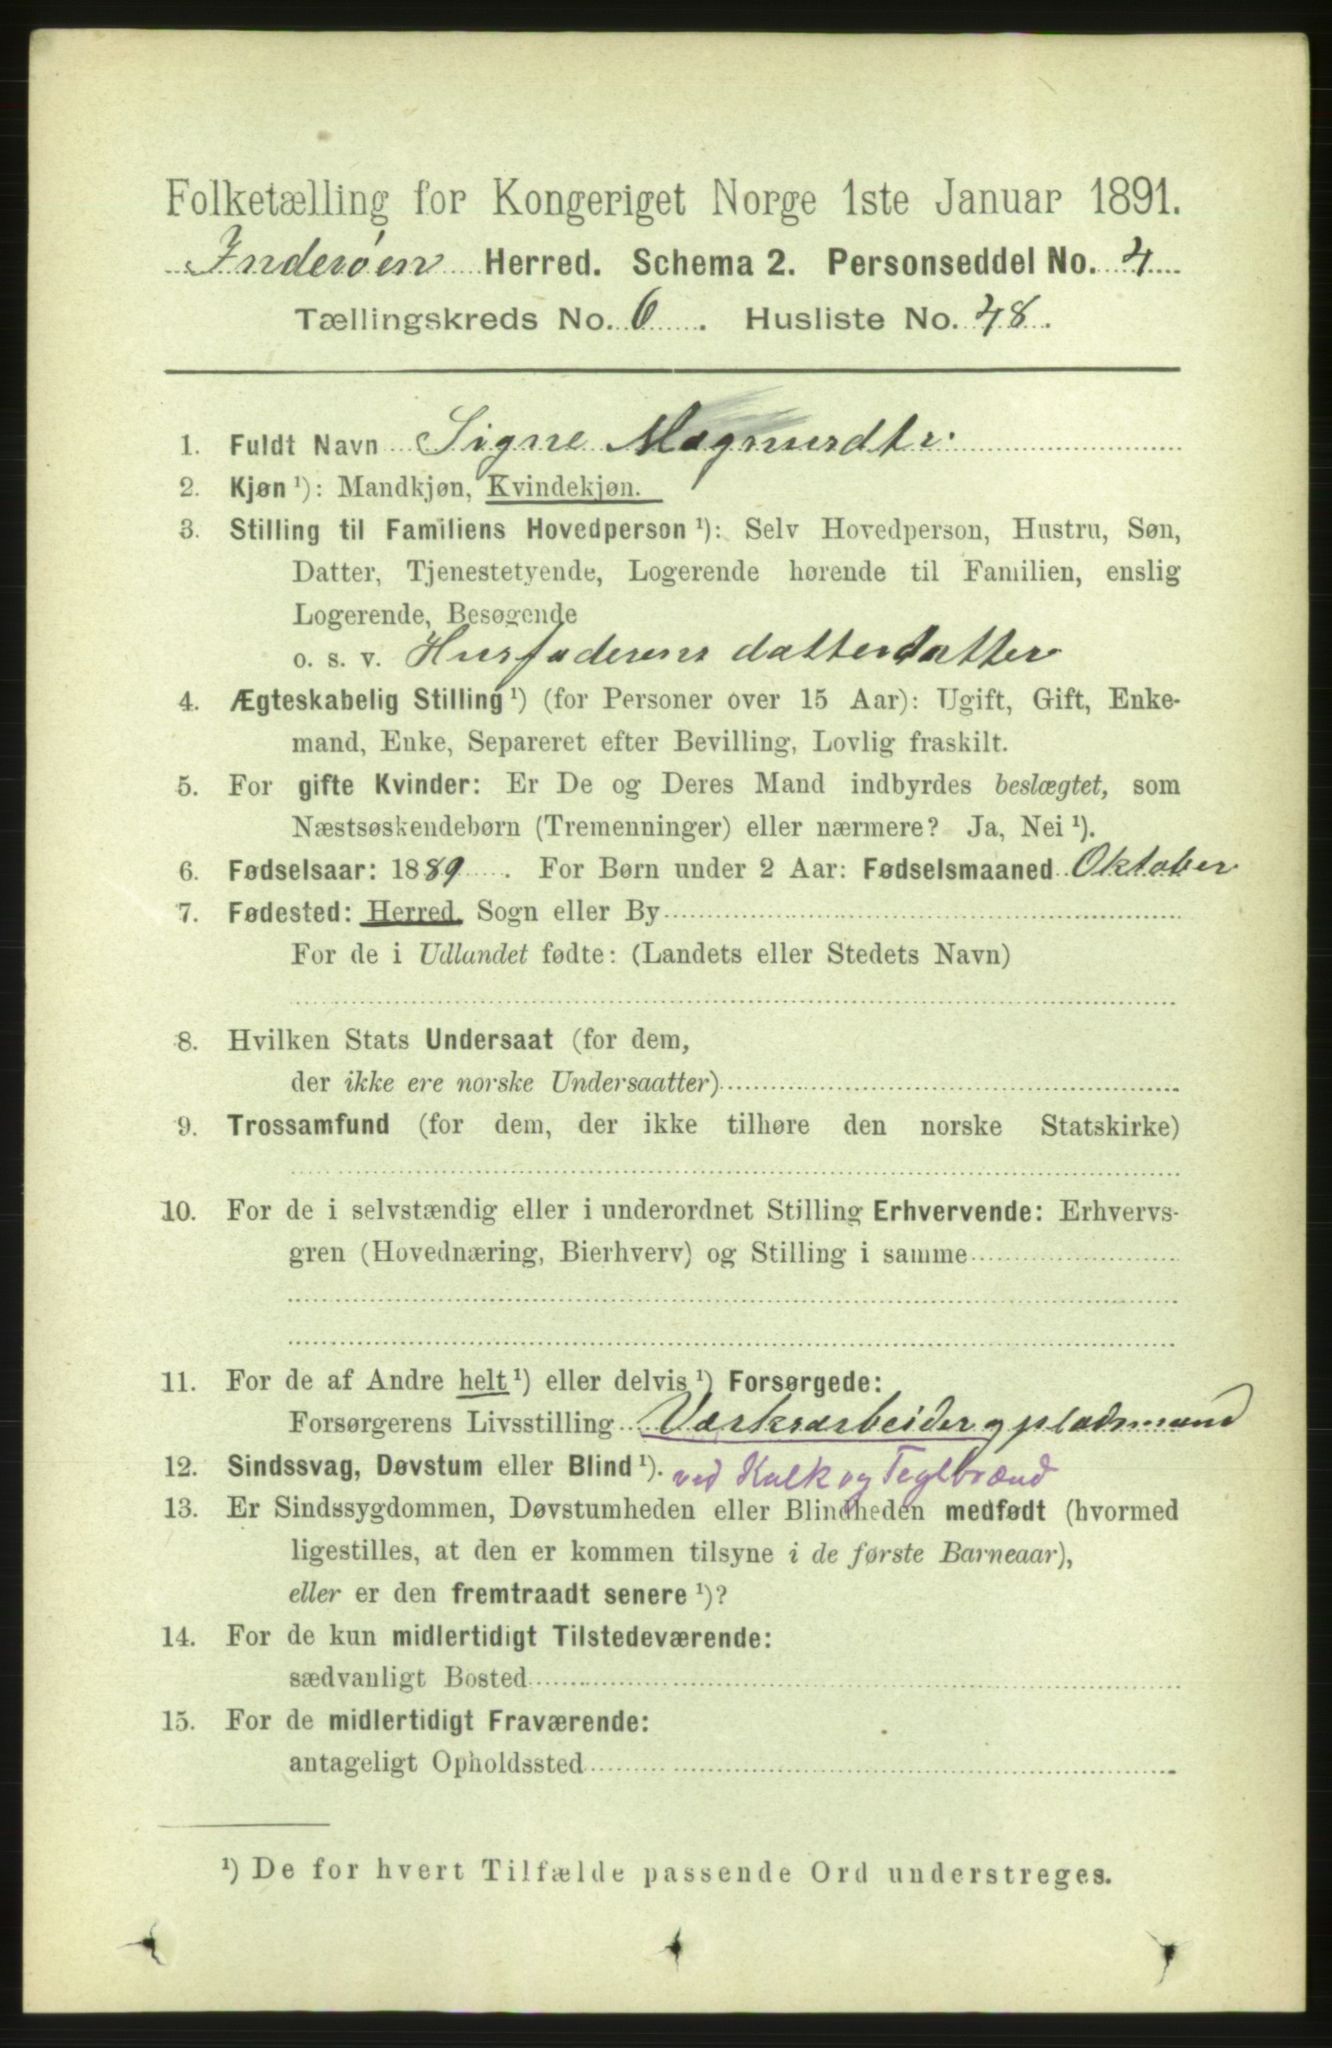 Folketælling for Kongeriget Norge 1ste Januar 1891.
Inderøen Herred. Schema 2. Personseddel No. 4
Tællingskreds No. 6. Husliste No. 48.
1. Fuldt Navn Signe Magnusdtr.
2. Kjøn ¹): Mandkjøn, Kvindekjøn.
3. Stilling til Familiens Hovedperson ¹): Selv Hovedperson, Hustru, Søn,
Datter, Tjenestetyende, Logerende hørende til Familien, enslig
Logerende, Besøgende
o. s. v. Husfaderens datterdatter
4. Ægteskabelig Stilling ¹) (for Personer over 15 Aar): Ugift, Gift, Enke-
mand, Enke, Separeret efter Bevilling, Lovlig fraskilt.
5. For gifte Kvinder: Er De og Deres Mand indbyrdes beslægtet, som
Næstsøskendebørn (Tremenninger) eller nærmere? Ja, Nei ¹).
6. Fødselsaar: 1889. For Børn under 2 Aar: Fødselsmaaned Oktober
7. Fødested: Herred, Sogn eller By
For de i Udlandet fødte: (Landets eller Stedets Navn)
8. Hvilken Stats Undersaat (for dem,
der ikke ere norske Undersaatter)
9. Trossamfund (for dem, der ikke tilhøre den norske Statskirke)
10. For de i selvstændig eller i underordnet Stilling Erhvervende: Erhvervs-
gren (Hovednæring, Bierhverv) og Stilling i samme
11. For de af Andre helt ¹) eller delvis ¹) Forsørgede:
Forsørgerens Livsstilling Værksarbeider og pladsmand
12. Sindssvag, Døvstum eller Blind ¹). ved Kalk og Teglbrænd
13. Er Sindssygdommen, Døvstumheden eller Blindheden medfødt (hvormed
ligestilles, at den er kommen tilsyne i de første Barneaar),
eller er den fremtraadt senere ¹)?
14. For de kun midlertidigt Tilstedeværende:
sædvanligt Bosted
15. For de midlertidigt Fraværende:
antageligt Opholdssted
¹) De for hvert Tilfælde passende Ord understreges.